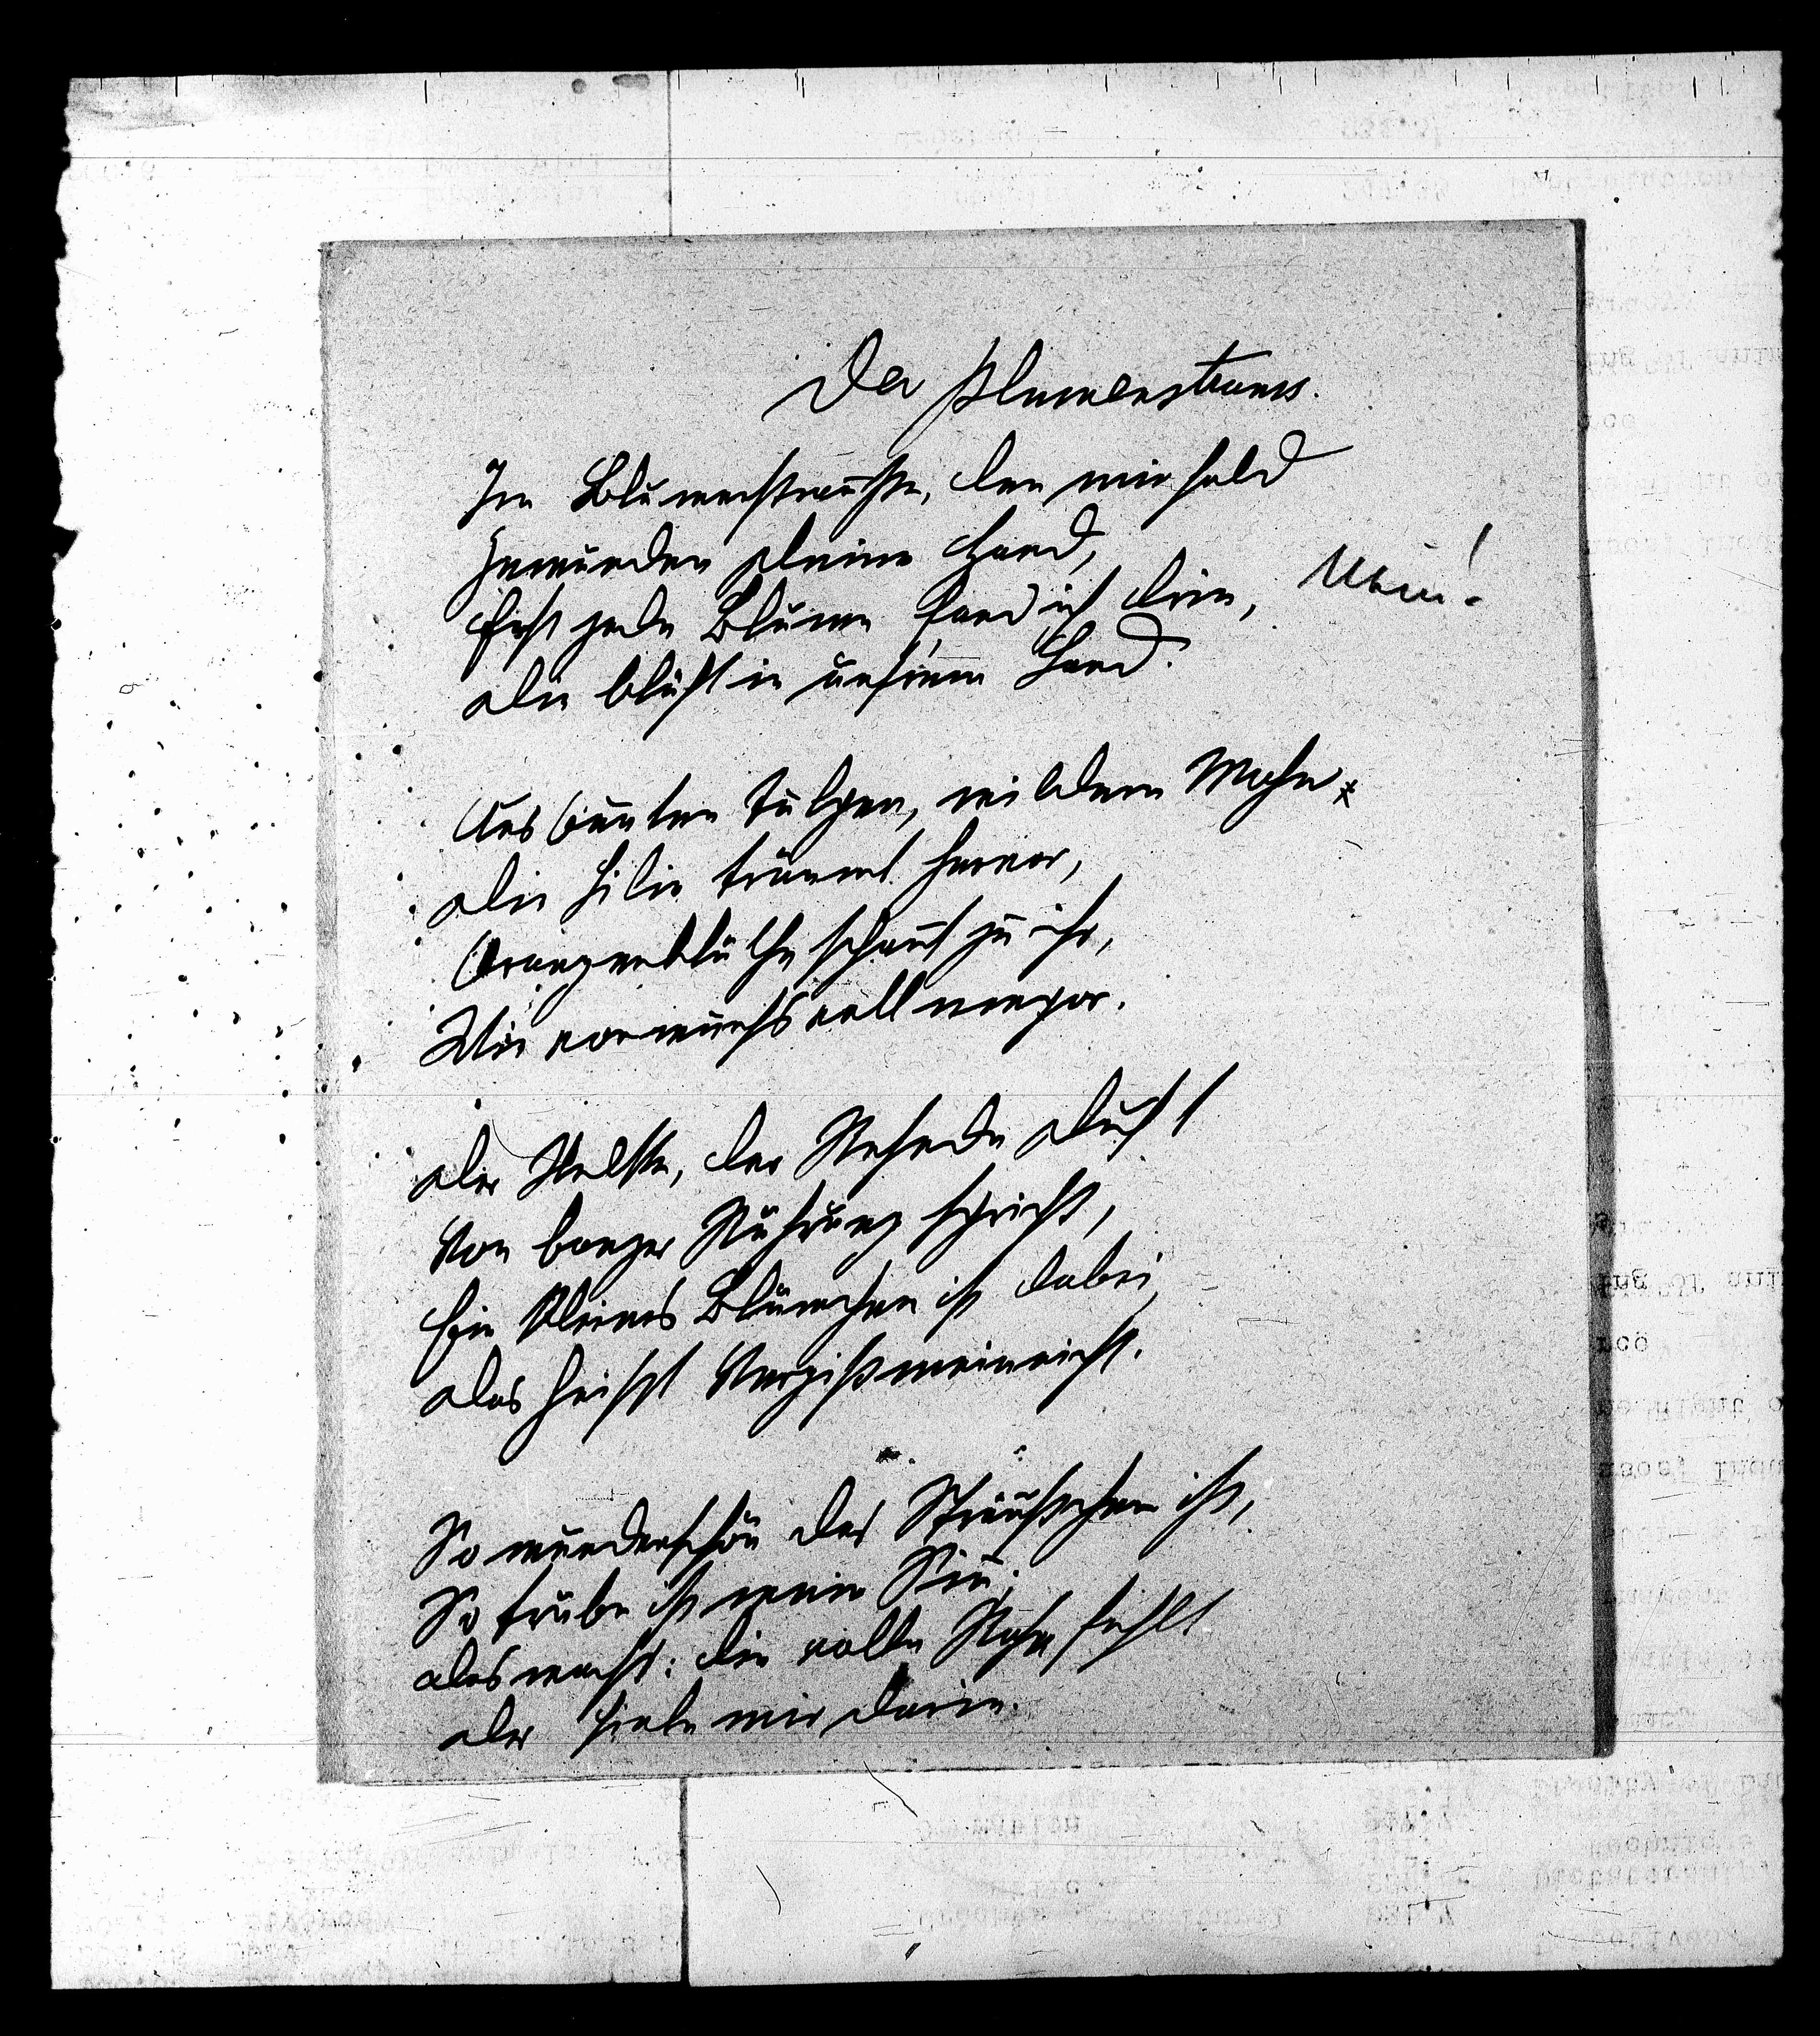 Der Blumenstrauss.
Im Blumenstrauße, den mir hold
Gewunden Deine Hand,
Fast jede Blume fand ich drin,
Die blüht in unserm Land.
Aus bunten Tulpen, wildem Mohn
Die Lilie träumt hervor,
Orangenblüthe schaut zu ihr,
Wie vorwurfsvoll empor.
Der Nelke, der Reseda Duft
Von banger Rührung spricht,
Ein kleines Blümchen ist dabei,
Das heißt Vergißmeinnicht.
So wunderschön das Sträußchen ist,
So trübe ist mein Sinn.
Das macht: die volle Rose fehlt
Der Liebe mir darin.